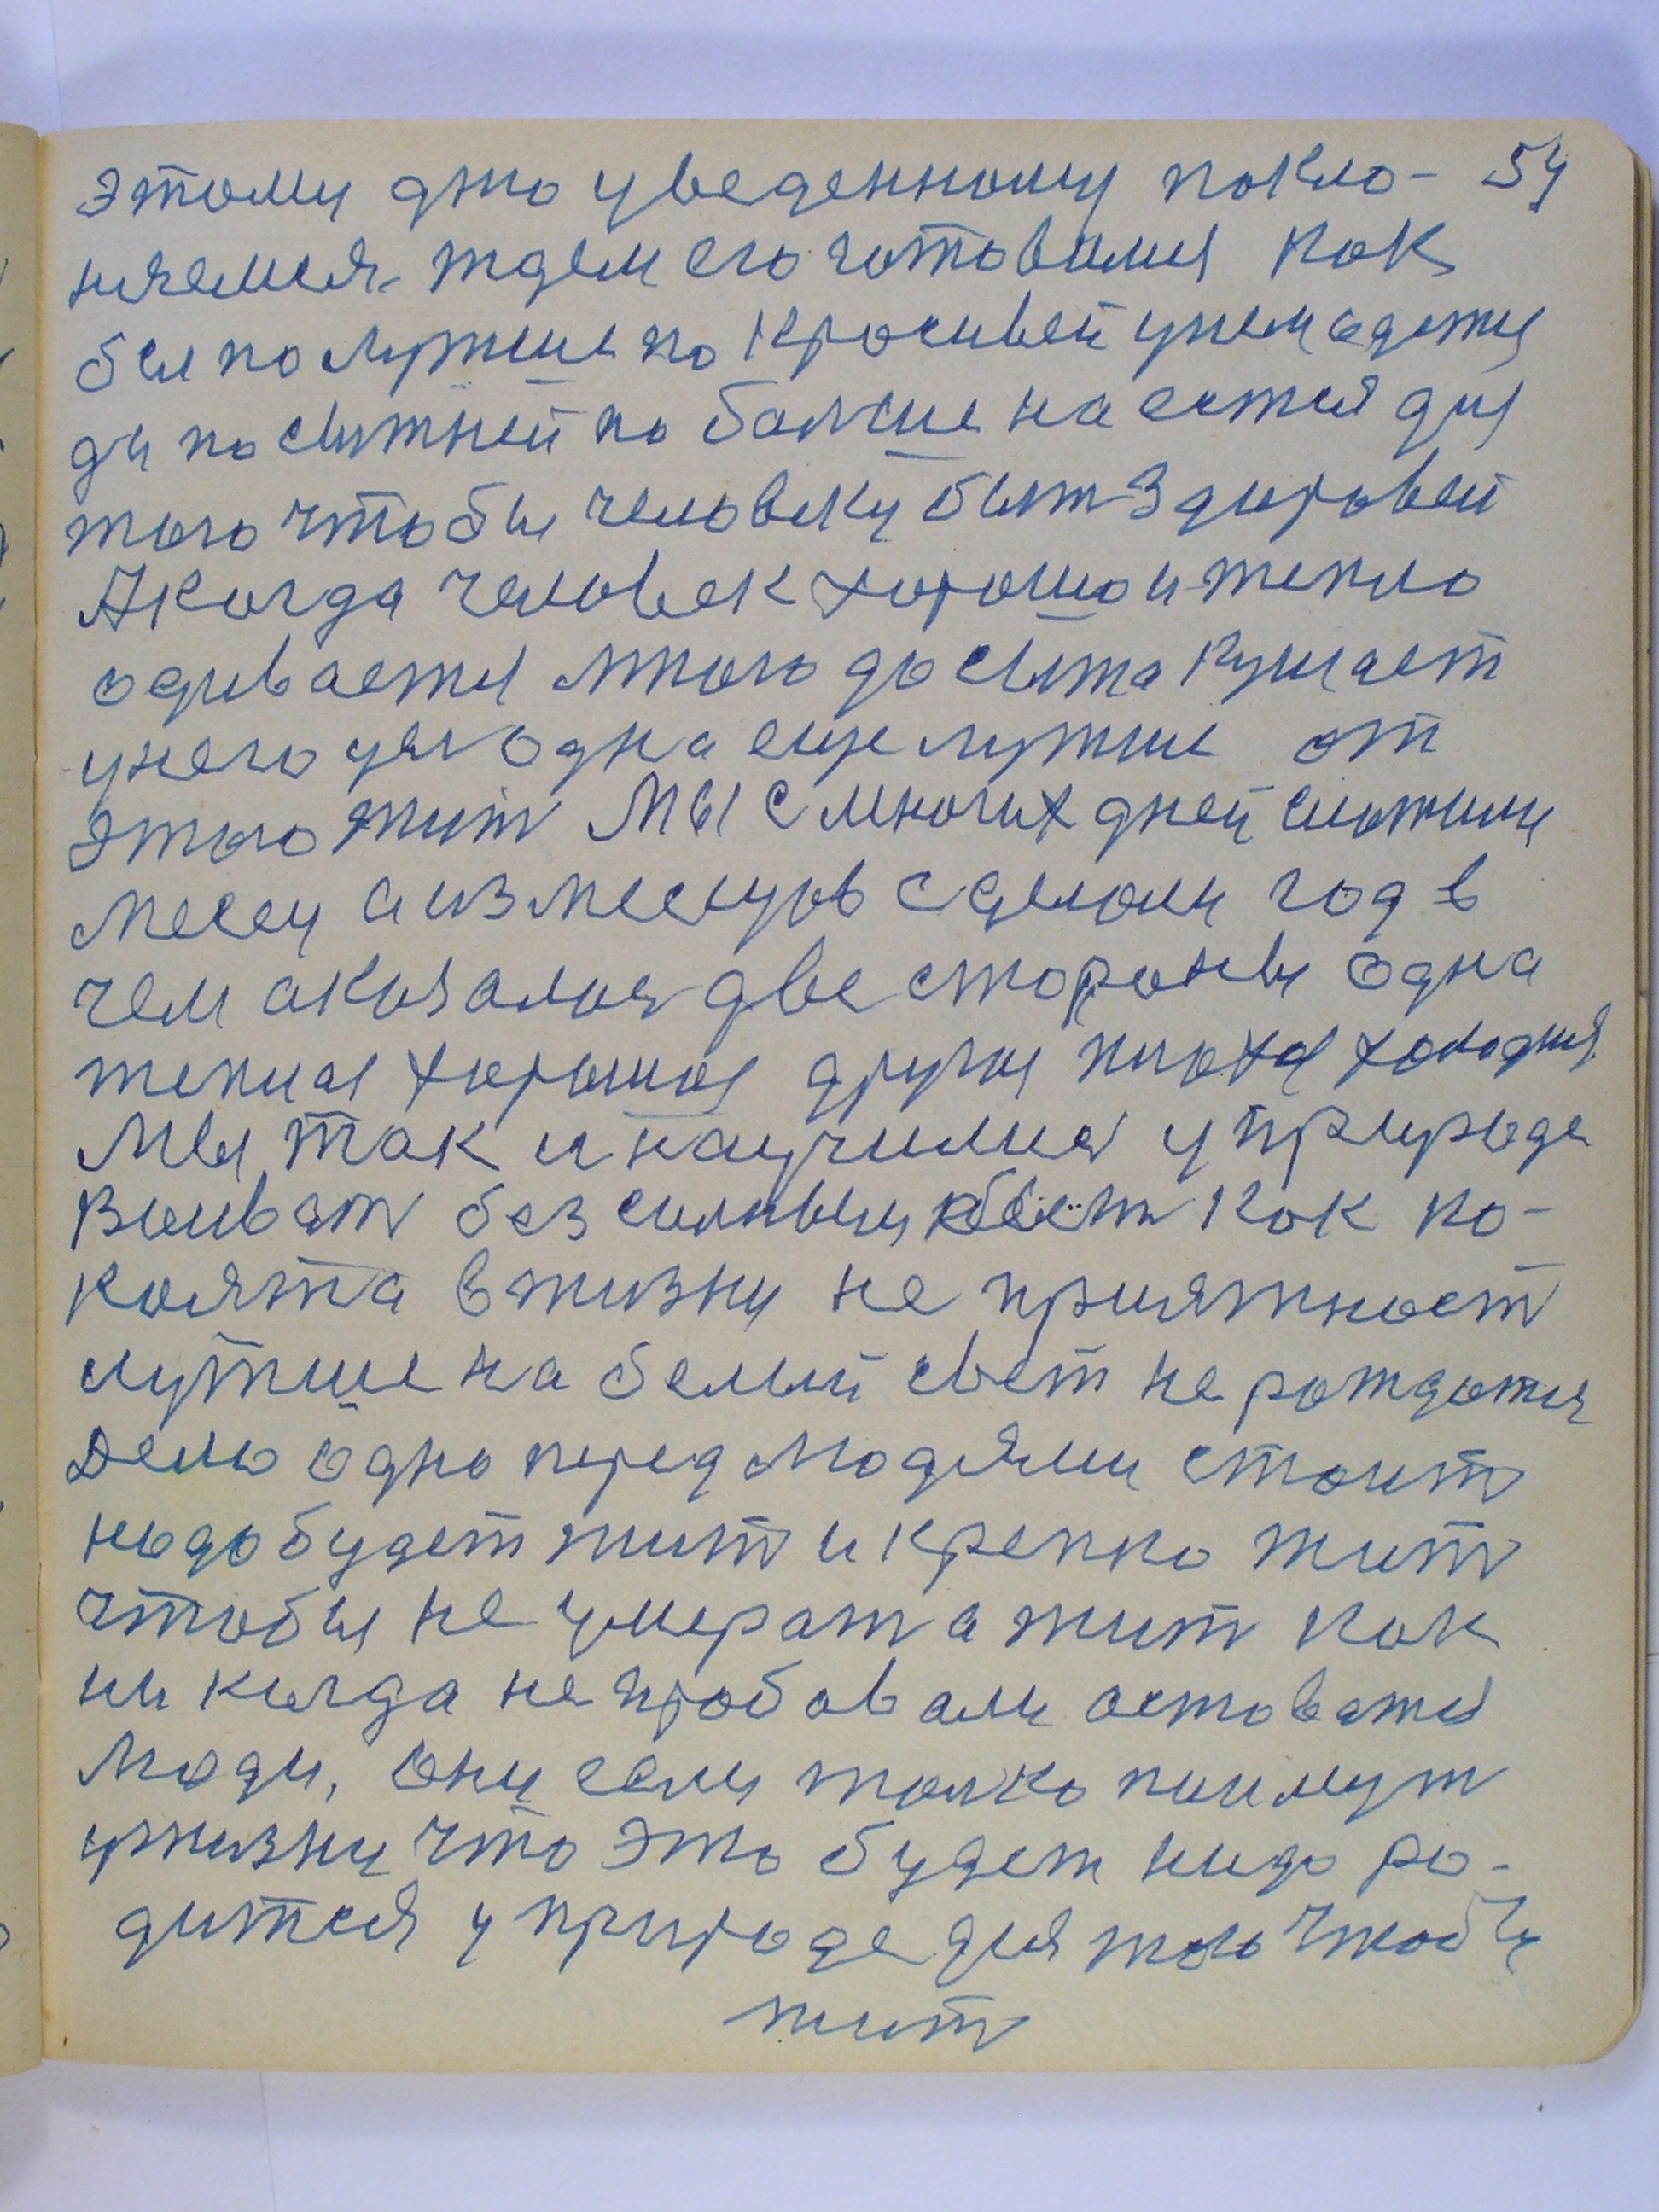 этому дню уведенному покло- 54
няемся. ждем его готовимся как
бы по лутше по красивей у нем одетця
да по сытней по балше на естся для
того чтобы человеку быт здоровей
А когда человек хорошо и тепло
одивается много до сыта кушает
у него цел одна еще лутше от
этого жит Мы с многих дней сложили
месец а из месецов сделали год в
чем аказалося две стороны одна
теплая хорошая другая плохая холодная.
Мы так и научилися у природе
воиват без силными быт как по-
колята в жизни не приятност
лутше на белый свет не рождатся
Дело одно перед людями стоит
надо будет жит и крепко жит
чтобы не умерат а жит как
ни когда не пробовали оставатся
люди, они если толко поимут
у жизни что это будет надо ро-
дится у природе для того чтобы
жит